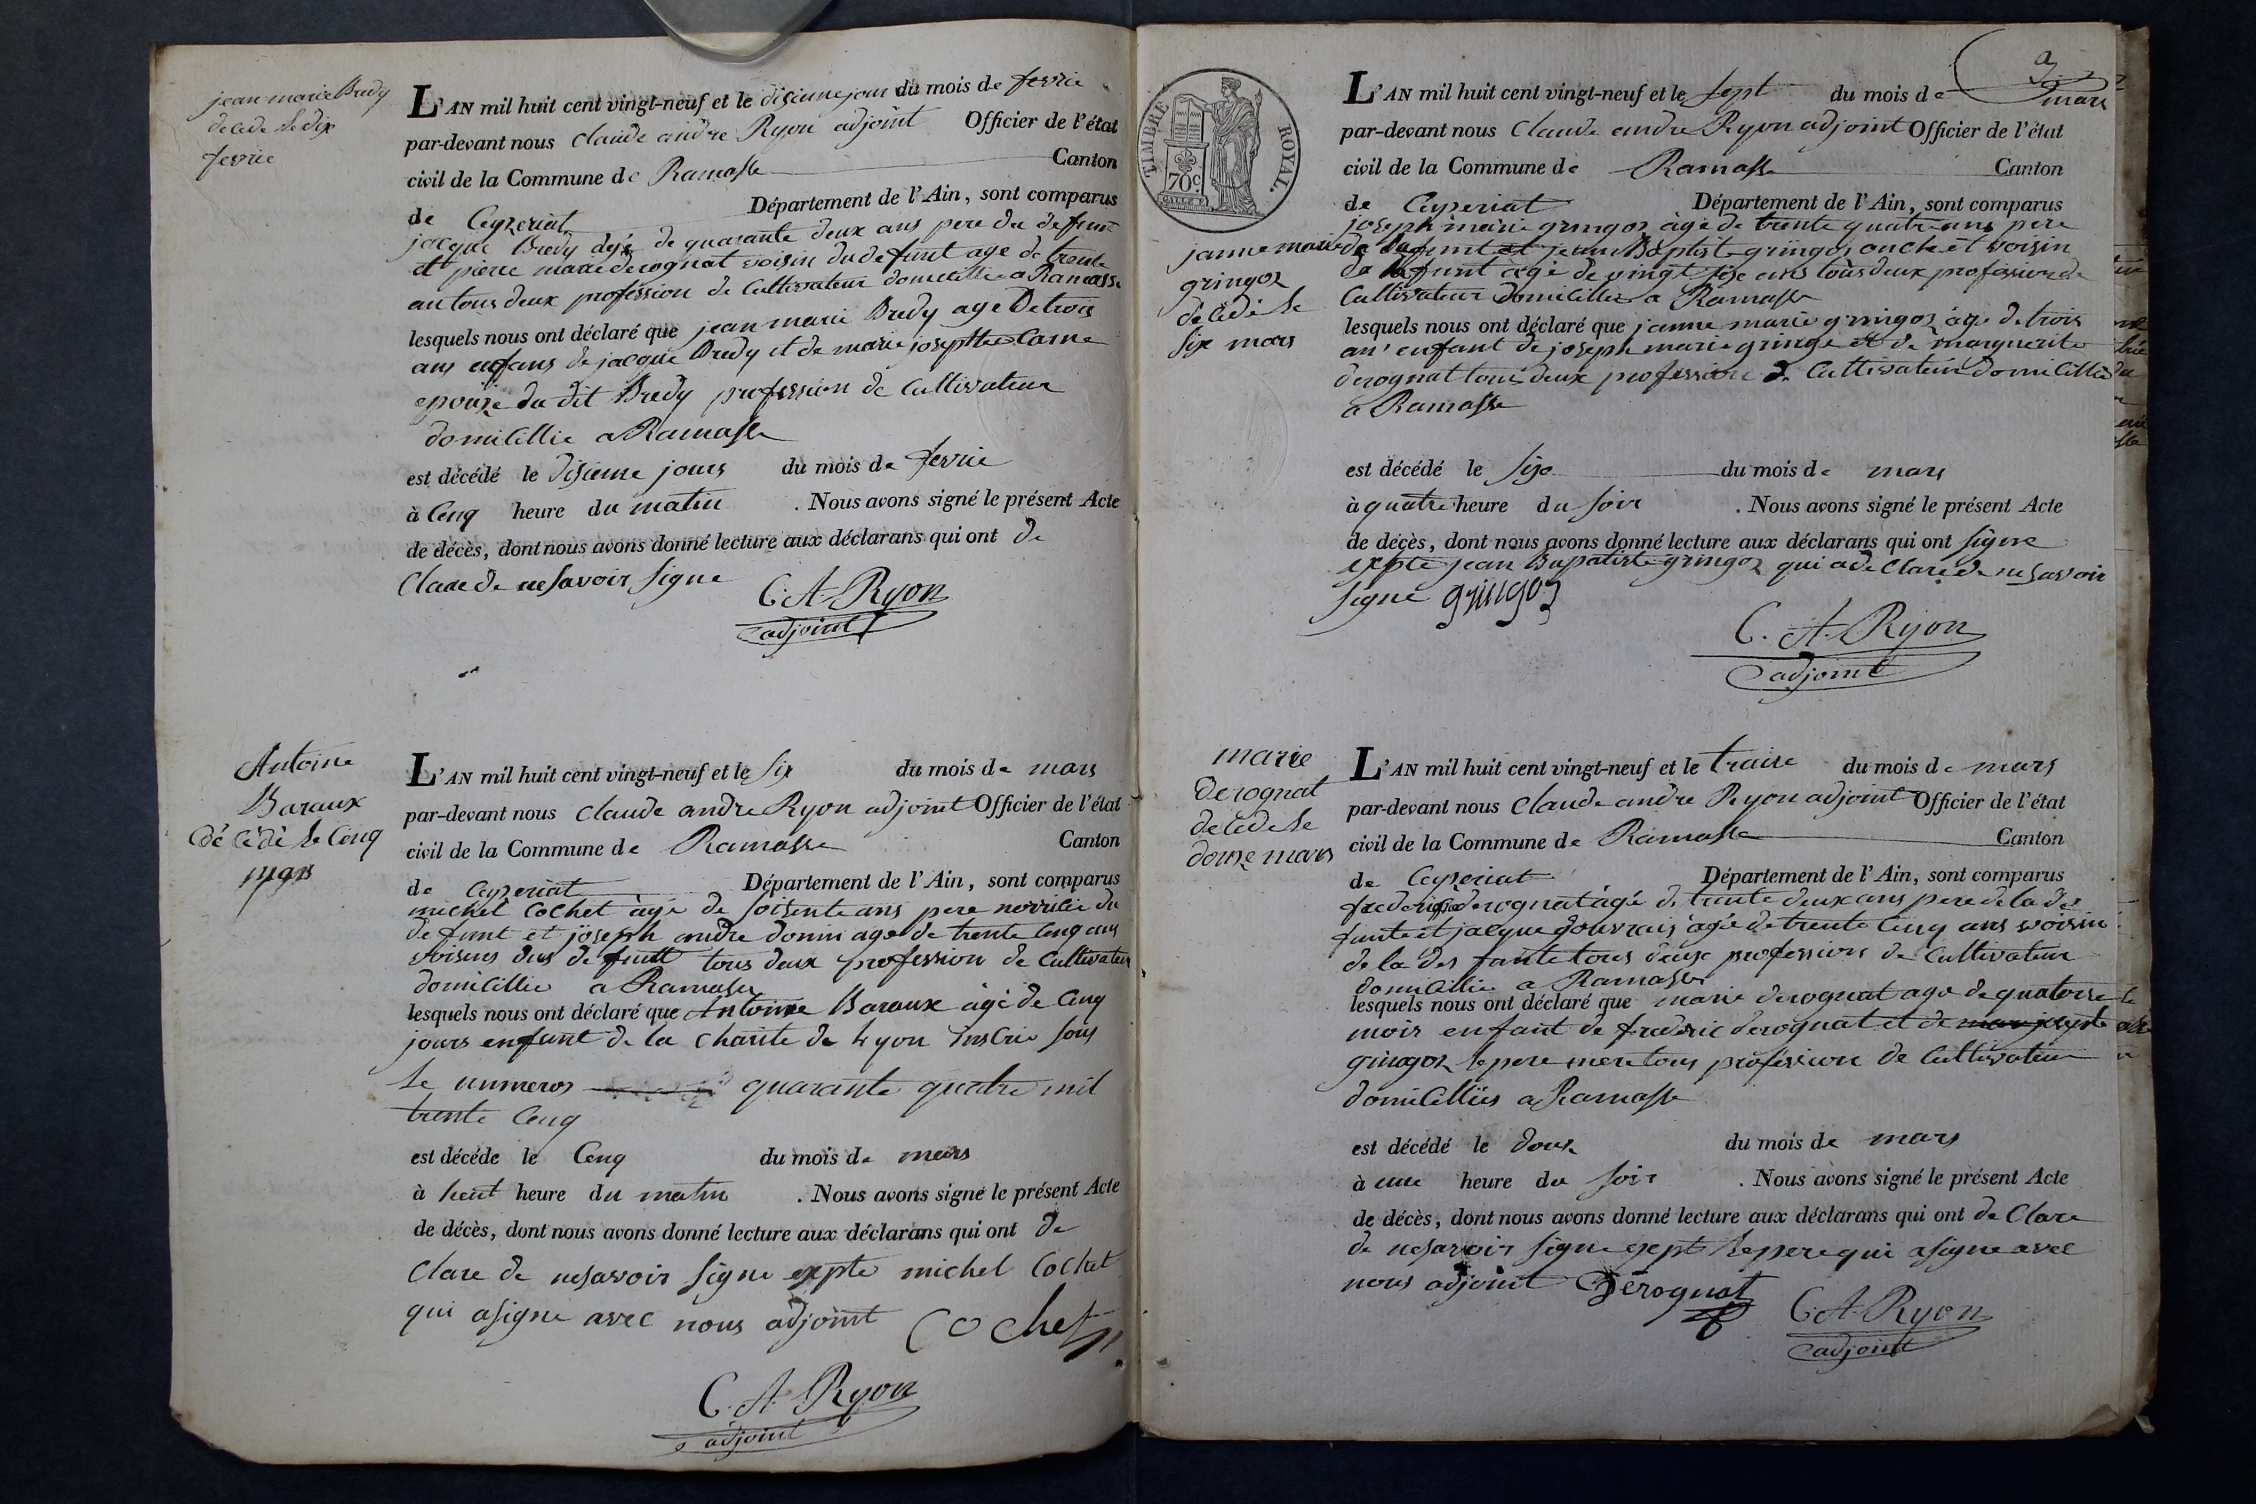 jean marie Bredy
décédé le dix
fevrie
L'AN mil huit cent vingt-neuf et le disieme jour du mois de fevrie
par-devant nous Claude andre Ryon adjoint Officier de l'état
civil de la Commune de Ramasse Canton
de Ceyzeriat Département de l'Ain, sont comparus
jacque Bredy agé de quarante deux ans pere du defunt
et pierre marie derognat voisin du defunt age de trente
an tous deux profession de Cultivateur domicillie a Ramasse
lesquels nous ont déclaré que jean marie Bredy age De trois
ans enfans de jacque Bredy et de marie josephte
epouze du dit Bredy profession de Cultivateur
domicillie a Ramasse
est décédé le disieme jours du mois de fevrie
à Cenq heure du matin . Nous avons signé le présent Acte
de décès, dont nous avons donné lecture aux déclarans qui ont de
Clare de ne Savoir Signe
C. A. Ryon
adjoint
Antoine
Baraux
décédé le Cenq
mars
L'AN mil huit cent vingt-neuf et le Six du mois de mars
par-devant nous Claude andre Ryon adjoint Officier de l'état
civil de la Commune de Ramasse Canton
de Ceyzeriat Département de l'Ain, sont comparus
michel Cochet agé de Soisente ans pere nourricie du
defunt et joseph andre donin age de trente Cenq ans
voisins dus defunt tous deux profession de Cultivateur
domicillie a Ramasse
lesquels nous ont déclaré que Antoine Baraux agé de Cenq
jours enfant de la Charite de Lyon inscrie Sous
le numeros quarante quatre mil
trente Cenq
est décédé le Cenq du mois de mars
à huit heure du matin . Nous avons signé le présent Acte
de décès, dont nous avons donné lecture aux déclarans qui ont de
Clare de ne Savoir Signe expte michel Cochet
qui a Signe avec nous adjoint Cochet
C. A. Ryon
adjoint
3
TIMBRE ROYAL.
70c
L'AN mil huit cent vingt-neuf et le Sept du mois de mars
par-devant nous Claude andre Ryon adjoint Officier de l'état
civil de la Commune de Ramasse Canton
de Ceyzeriat Département de l'Ain, sont comparus
janne marie
gringoz
décédé le
Sixe mars
joseph marie gringoz àgé de trente quatre ans pere
de defunt et jean Baptiste gringoz oncle et voisin
de defunt agé de vingt Sixe ans tous deux profession de
Cultivateur domicillie a Ramasse
lesquels nous ont déclaré que janne marie gringoz àgé de trois
an enfant de joseph marie gringo et de marguerite
derognat tous deux profession de Cultivateur domicillie
a Ramasse
est décédé le Sixe du mois de mars
à quatre heure du Soir . Nous avons signé le présent Acte
de décès, dont nous avons donné lecture aux déclarans qui ont Signe
expte jean Bapatiste gringoz qui a de Claré de ne Savoir
Signe gringoz
C. A. Ryon
adjoint
marie
derognat
décédé le
douze mars
L'AN mil huit cent vingt-neuf et le traise du mois de mars
par-devant nous Claude andre Ryon adjoint Officier de l'état
civil de la Commune de Ramasse Canton
de Ceyzeriat Département de l'Ain, sont comparus
frederic derognat àgé de trente deux ans pere de la de
funte et jacque gouvrais àgé de trente Cenq ans voisin
de la des funte tous deux profession de Cultivateur
domicillie a Ramasse
lesquels nous ont déclaré que marie derognat age de quatorse
mois enfant de frederic derognat et de
gringoz le pere mere tous profession de Cultivateur
domicilliés a Ramasse
est décédé le douse du mois de mars
à une heure du Soir . Nous avons signé le présent Acte
de décès, dont nous avons donné lecture aux déclarans qui ont de Clare
de ne Savoir Signe exept le pere qui a signe avec
nous adjoint Dérognat
C. A. Ryon
adjoint